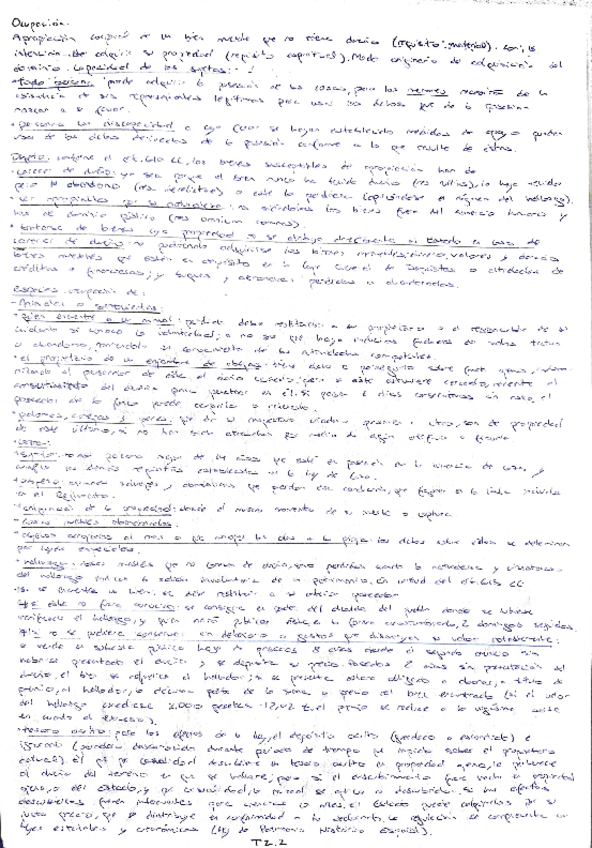 Ocupación.
Apropiación corporal de un bien mueble que no tiene dueño (requisito material), con la
intención de adquirir su propiedad (requisito espiritual). Modo originario de adquisición del
dominio. Capacidad de los sujetos:
Toda persona puede adquirir la posesión de las cosas, pero los menores necesitan de la
asistencia de sus representantes legítimos para usar los derechos que de la posesión
nazcan a su favor.
personas con discapacidad a cuyo favor se hayan establecido medidas de apoyo pueden
usar de los derechos derivados de la posesión conforme a lo que resulte de éstas.
Objeto: conforme el art. 610 CC, los bienes susceptibles de apropiación han de
carecer de dueño: ya sea porque el bien nunca ha tenido dueño (res nullius), lo haya
pero lo abandonó (res derelictae) o este lo perdiera (aplicándose el régimen del hallazgo).
ser apropiables por su naturaleza: no los bienes fuera del comercio humano y
los de dominio público (res communes).
tratarse de bienes cuya propiedad no se atribuya directamente al Estado en caso de
carecer de dueño: no pudiendo adquirirse los bienes inmuebles, dinero, valores y demás
bienes muebles que estén en depósito en la Caja General de Depósitos o entidades de
créditos o financieras; y buques y aeronaves perdidas o abandonadas.
Especies: ocupación de:
- Animales
quien encuentre a un animal perdido debe restituirlo a su propietario o al responsable de su
cuidado si conoce la identidad; a no ser que haya indicios fundados de malos tratos
o abandono, poniéndolo en conocimiento de las autoridades competentes.
el propietario de un enjambre de abejas tiene derecho a perseguirlo sobre fundo ajeno, indem-
nizando al poseedor de este el daño causado, pero si este estuviere cercado, necesita el
consentimiento del dueño para penetrar en él. Si pasan 2 días consecutivos sin hacerlo, el
poseedor de la finca puede ocuparlo o retenerlo.
palomas, conejos y peces: que de su respectivo criadero pasaren a otro, son de propiedad
de este último, si no han sido atraídos por medio de algún artificio o fraude
- Caza:
persona mayor de 14 años que esté en posesión de la licencia de caza, y
cumpla los demás requisitos establecidos en la ley de Caza.
animales salvajes y domésticos que pierdan esa condición, que figuren en la lista incluida
en el Reglamento.
adquisición de la propiedad: desde el mismo momento de su muerte o captura
- cosas muebles abandonadas.
objetos arrojados al mar o que arrojen las olas a la playa: los derechos sobre ellos se determinan
por leyes especiales.
hallazgo: cosas muebles que no carecen de dueño, sino perdidas cuando la naturaleza y circunstancias
del hallazgo indican la salida involuntaria de su patrimonio. En virtud del artículo 615 CC
Si se encuentra un bien, se debe restituir a su anterior poseedor
Si éste no fuera conocido: se consigna en poder del alcalde del pueblo donde se hubiese
verificado el hallazgo, y quien hará público éste, en la forma acostumbrada, 2 domingos seguidos.
Si no se pudiere conservar sin deterioro o gastos que disminuyan su valor notablemente:
se vende en subasta pública luego de pasados 8 días desde el segundo anuncio sin
haberse presentado el dueño y se deposita su precio. Pasados 2 años sin presentación del
dueño, el bien se adjudica al hallador; si se presenta estará obligado a abonar, a título de
premio, al hallador, la décima parte de la suma o precio del bien encontrado (si el valor
del hallazgo excediese 2.000 pesetas -12,02 €, el premio se reduce a la vigésima parte
en cuanto al exceso).
tesoro oculto: para los efectos de la ley, el depósito oculto e
ignorado
actual). El que por casualidad descubriere un tesoro oculto en propiedad ajena, le pertenece
al dueño del terreno en que se hallare; pero si el descubrimiento fuere hecho en propiedad
ajena, o del Estado, y por casualidad, la mitad se aplica al descubridor. Si los efectos
descubiertos fueren interesantes para ciencias o artes, el Estado puede adquirirlos por su
justo precio, que se distribuye en conformidad a lo declarado. La regulación se complementa con
leyes estatales y autonómicas (ley de Patrimonio Histórico Español).
T2.2